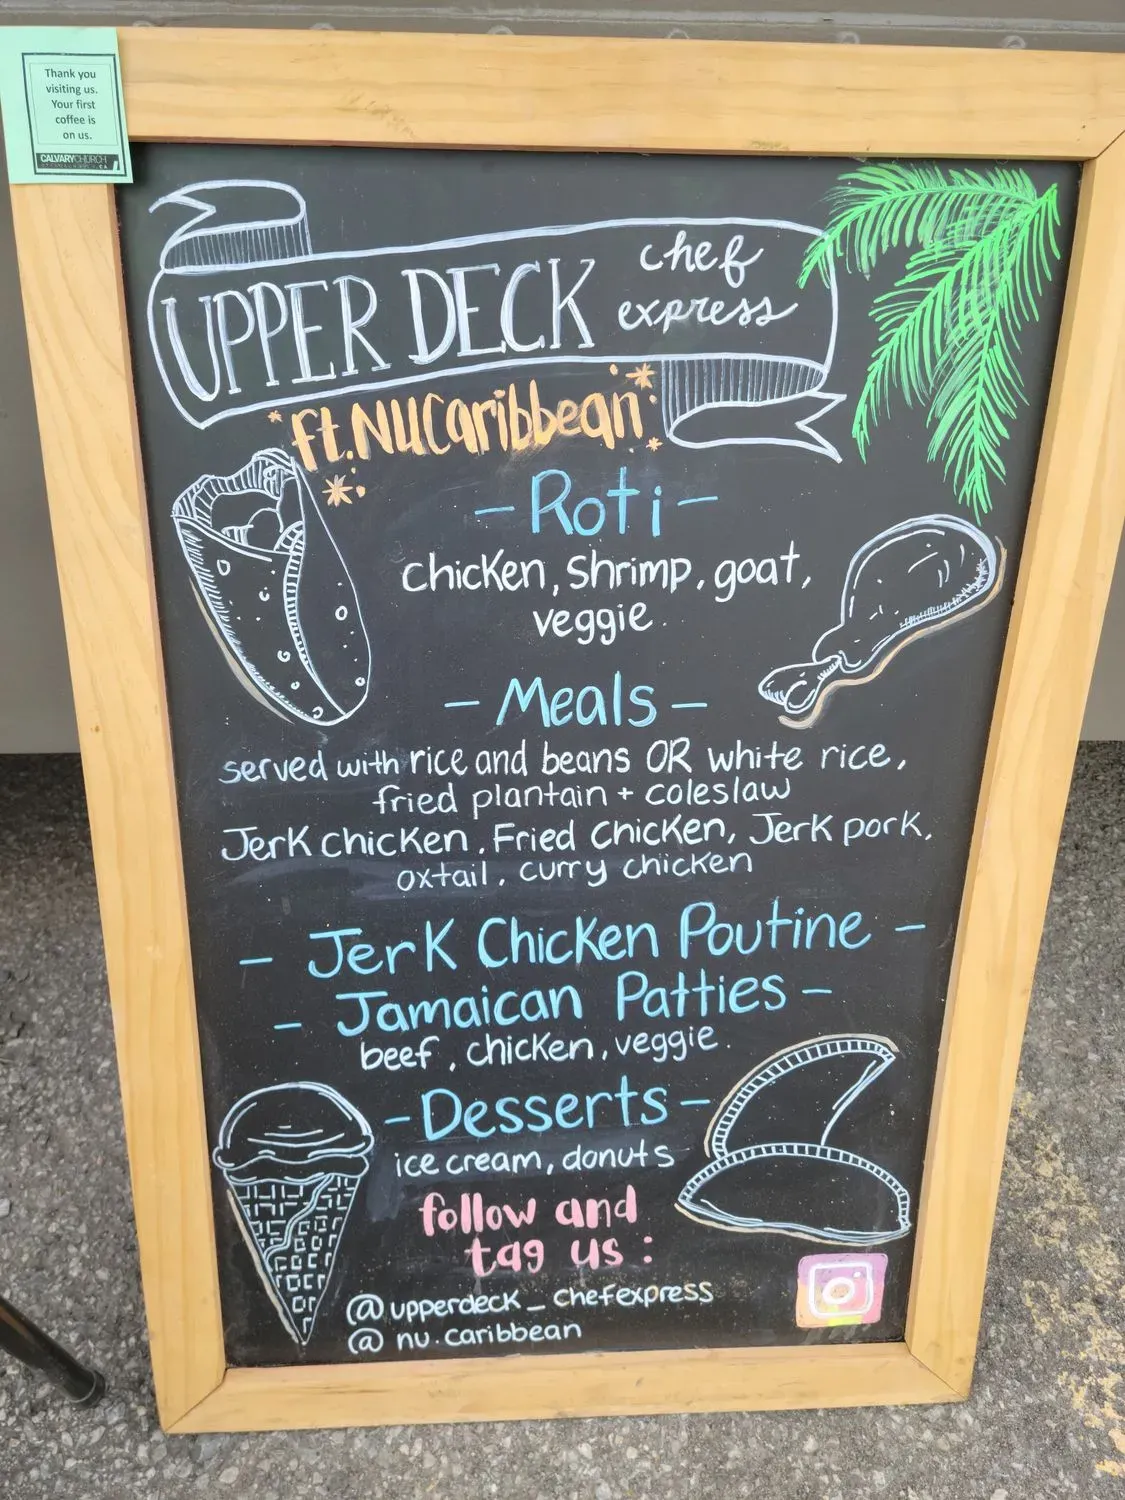 Thank you
visiting us.
Your first
coffee is
on us.
CALVARYCHURCH
UPPER DECK chef
express
ft.NUCaribbean
- Roti -
chicken, shrimp, goat,
veggie
- Meals -
served with rice and beans OR white rice,
fried plantain + coleslaw
Jerk chicken, Fried Chicken, Jerk pork,
oxtail, curry chicken
- Jerk Chicken Poutine -
- Jamaican Patties -
beef, chicken, veggie.
- Desserts -
ice cream, donuts
follow and
tag us :
@upperdeck_chefexpress
@nu.caribbean